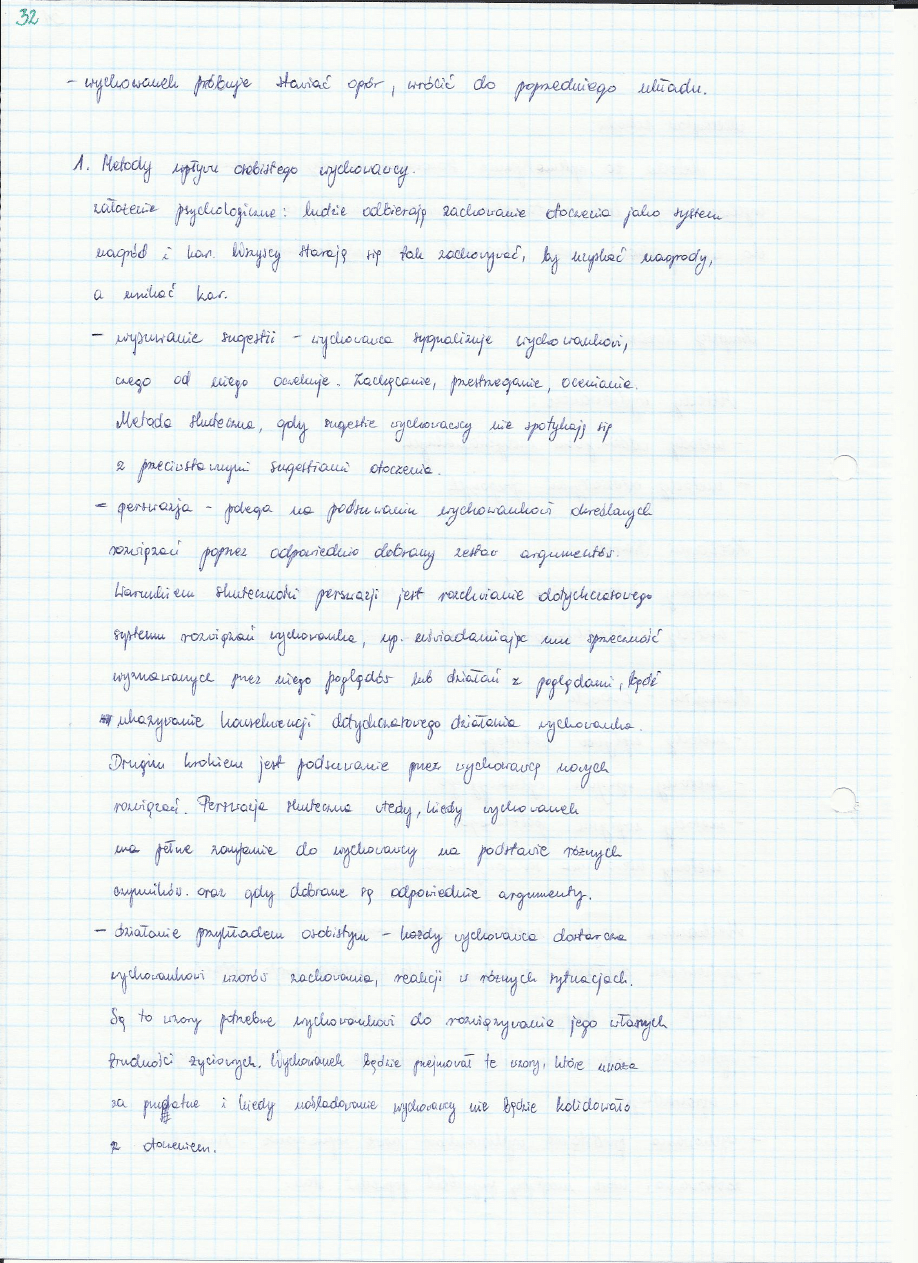 32
- wychowanek próbuje stawiać opór, wrócić do poprzedniego układu.
1. Metody wpływu osobistego wychowawcy.
założenie psychologiczne: ludzie odbierają zachowanie otoczenia jako system
nagród i kar. Wszyscy starają się tak zachowywać, by uzyskać nagrody,
a unikać kar.
- wysuwanie sugestii - wychowawca sygnalizuje wychowankowi,
czego od niego oczekuje. Zachęcanie, przestrzeganie, ocenianie.
Metoda skuteczna, gdy sugestie wychowawcy nie spotykają się
z przeciwstawnymi sugestiami otoczenia.
- perswazja - polega na podsuwaniu wychowankowi określanych
rozwiązań poprzez odpowiednio dobrany zestaw argumentów.
Warunkiem skuteczności perswazji jest rozchwianie dotychczasowego
systemu rozwiązań wychowanka, np. uświadamiając mu sprzeczność
wyznawanych przez niego poglądów lub działań z poglądami, bądź
ukazywanie konsekwencji dotychczasowego działania wychowanka.
Drugim krokiem jest podsuwanie przez wychowawcę nowych
rozwiązań. Perswazja skuteczna wtedy, kiedy wychowanek
ma pełne zaufanie do wychowawcy na podstawie różnych
czynników. oraz gdy dobrane są odpowiednie argumenty.
- działanie przykładem osobistym - każdy wychowawca dostarcza
wychowankowi wzorów zachowania, reakcji w różnych sytuacjach.
Są to wzory potrzebne wychowankowi do rozwiązywania jego własnych
trudności życiowych. Wychowanek będzie przejmował te wzory, które uważa
za przydatne i kiedy naśladowanie wychowawcy nie będzie kolidowało
z otoczeniem.